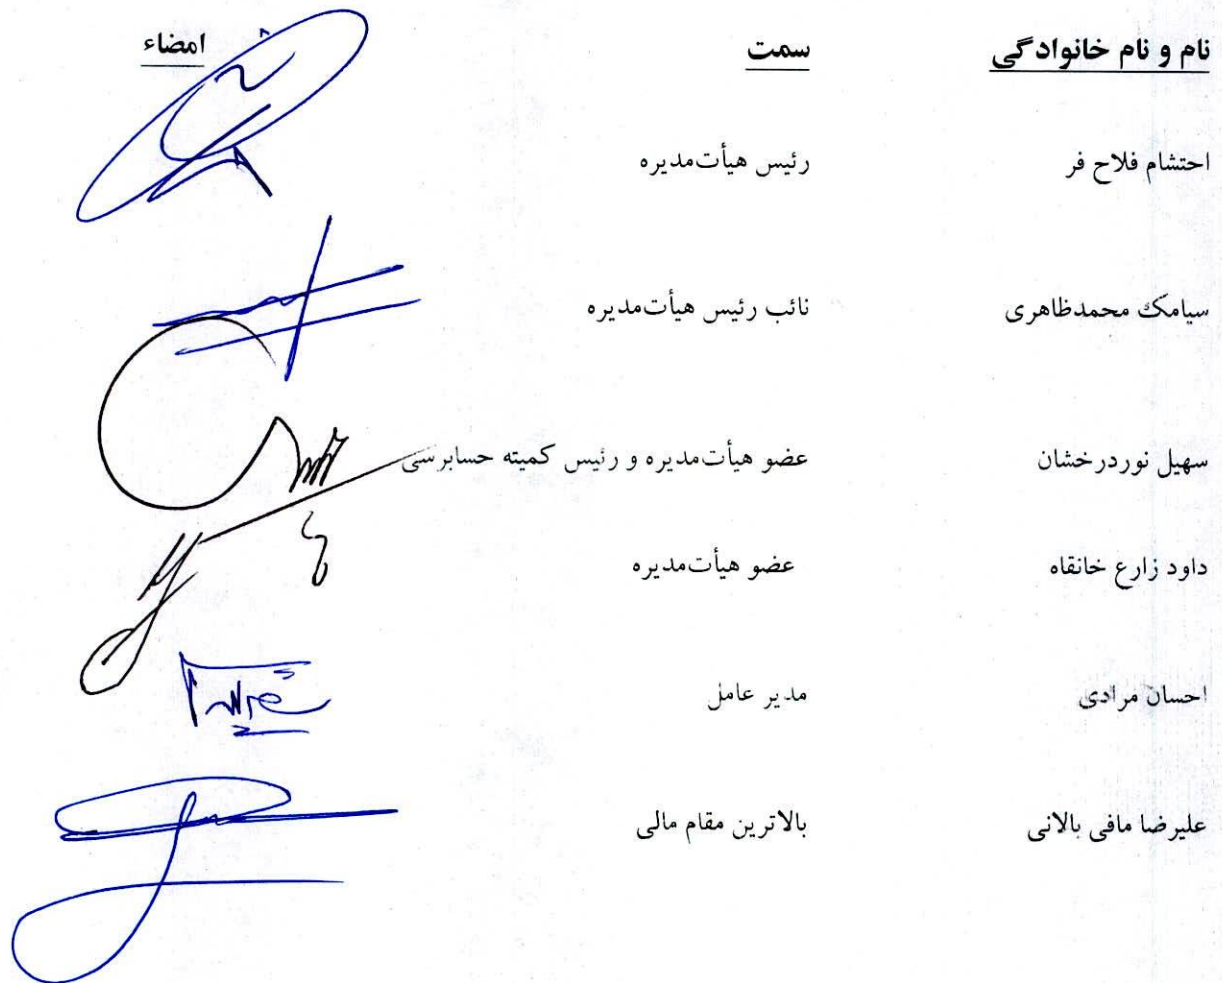 نام و نام خانوادگی سمت امضاء
احتشام فلاح فر رئیس هیأت‌مدیره
سیامک محمدظاهری نائب رئیس هیأت‌مدیره
سهیل نوردرخشان عضو هیأت‌مدیره و رئیس کمیته حسابرسی
داود زارع خانقاه عضو هیأت‌مدیره
احسان مرادی مدیر عامل
علیرضا مافی بالانی بالاترین مقام مالی